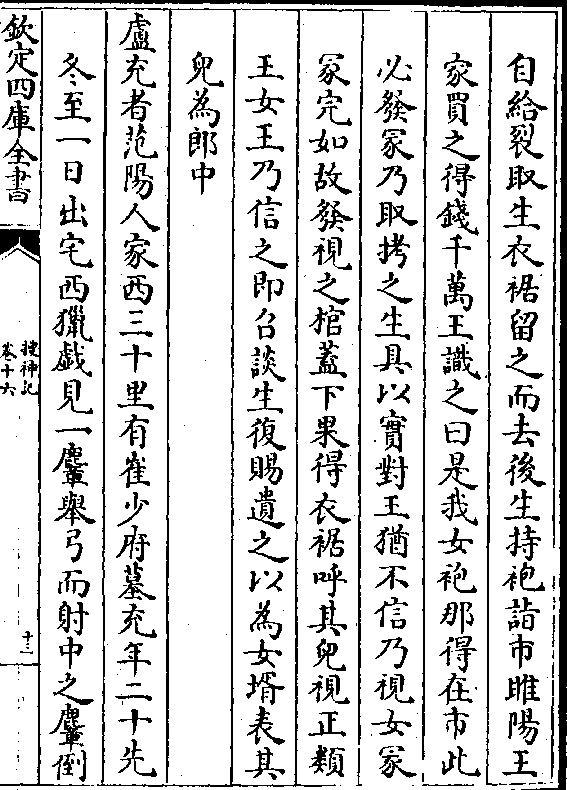 自給裂取生衣裾留之而去後生持袍詣市睢陽王
家買之得錢千萬王識之曰是我女袍那得在市此
必發冢乃取拷之生具以實對王猶不信乃視女冢
冢完如故發視之棺蓋下果得衣裾呼其兒視正類
王女王乃信之即召談生復賜遺之以為女壻表其
兒為郎中
盧充者范陽人家西三十里有崔少府墓充年二十先
冬至一日出宅西獵戲見一麞舉弓而射中之麞倒
欽定四庫全書
搜神記
卷十六
十三